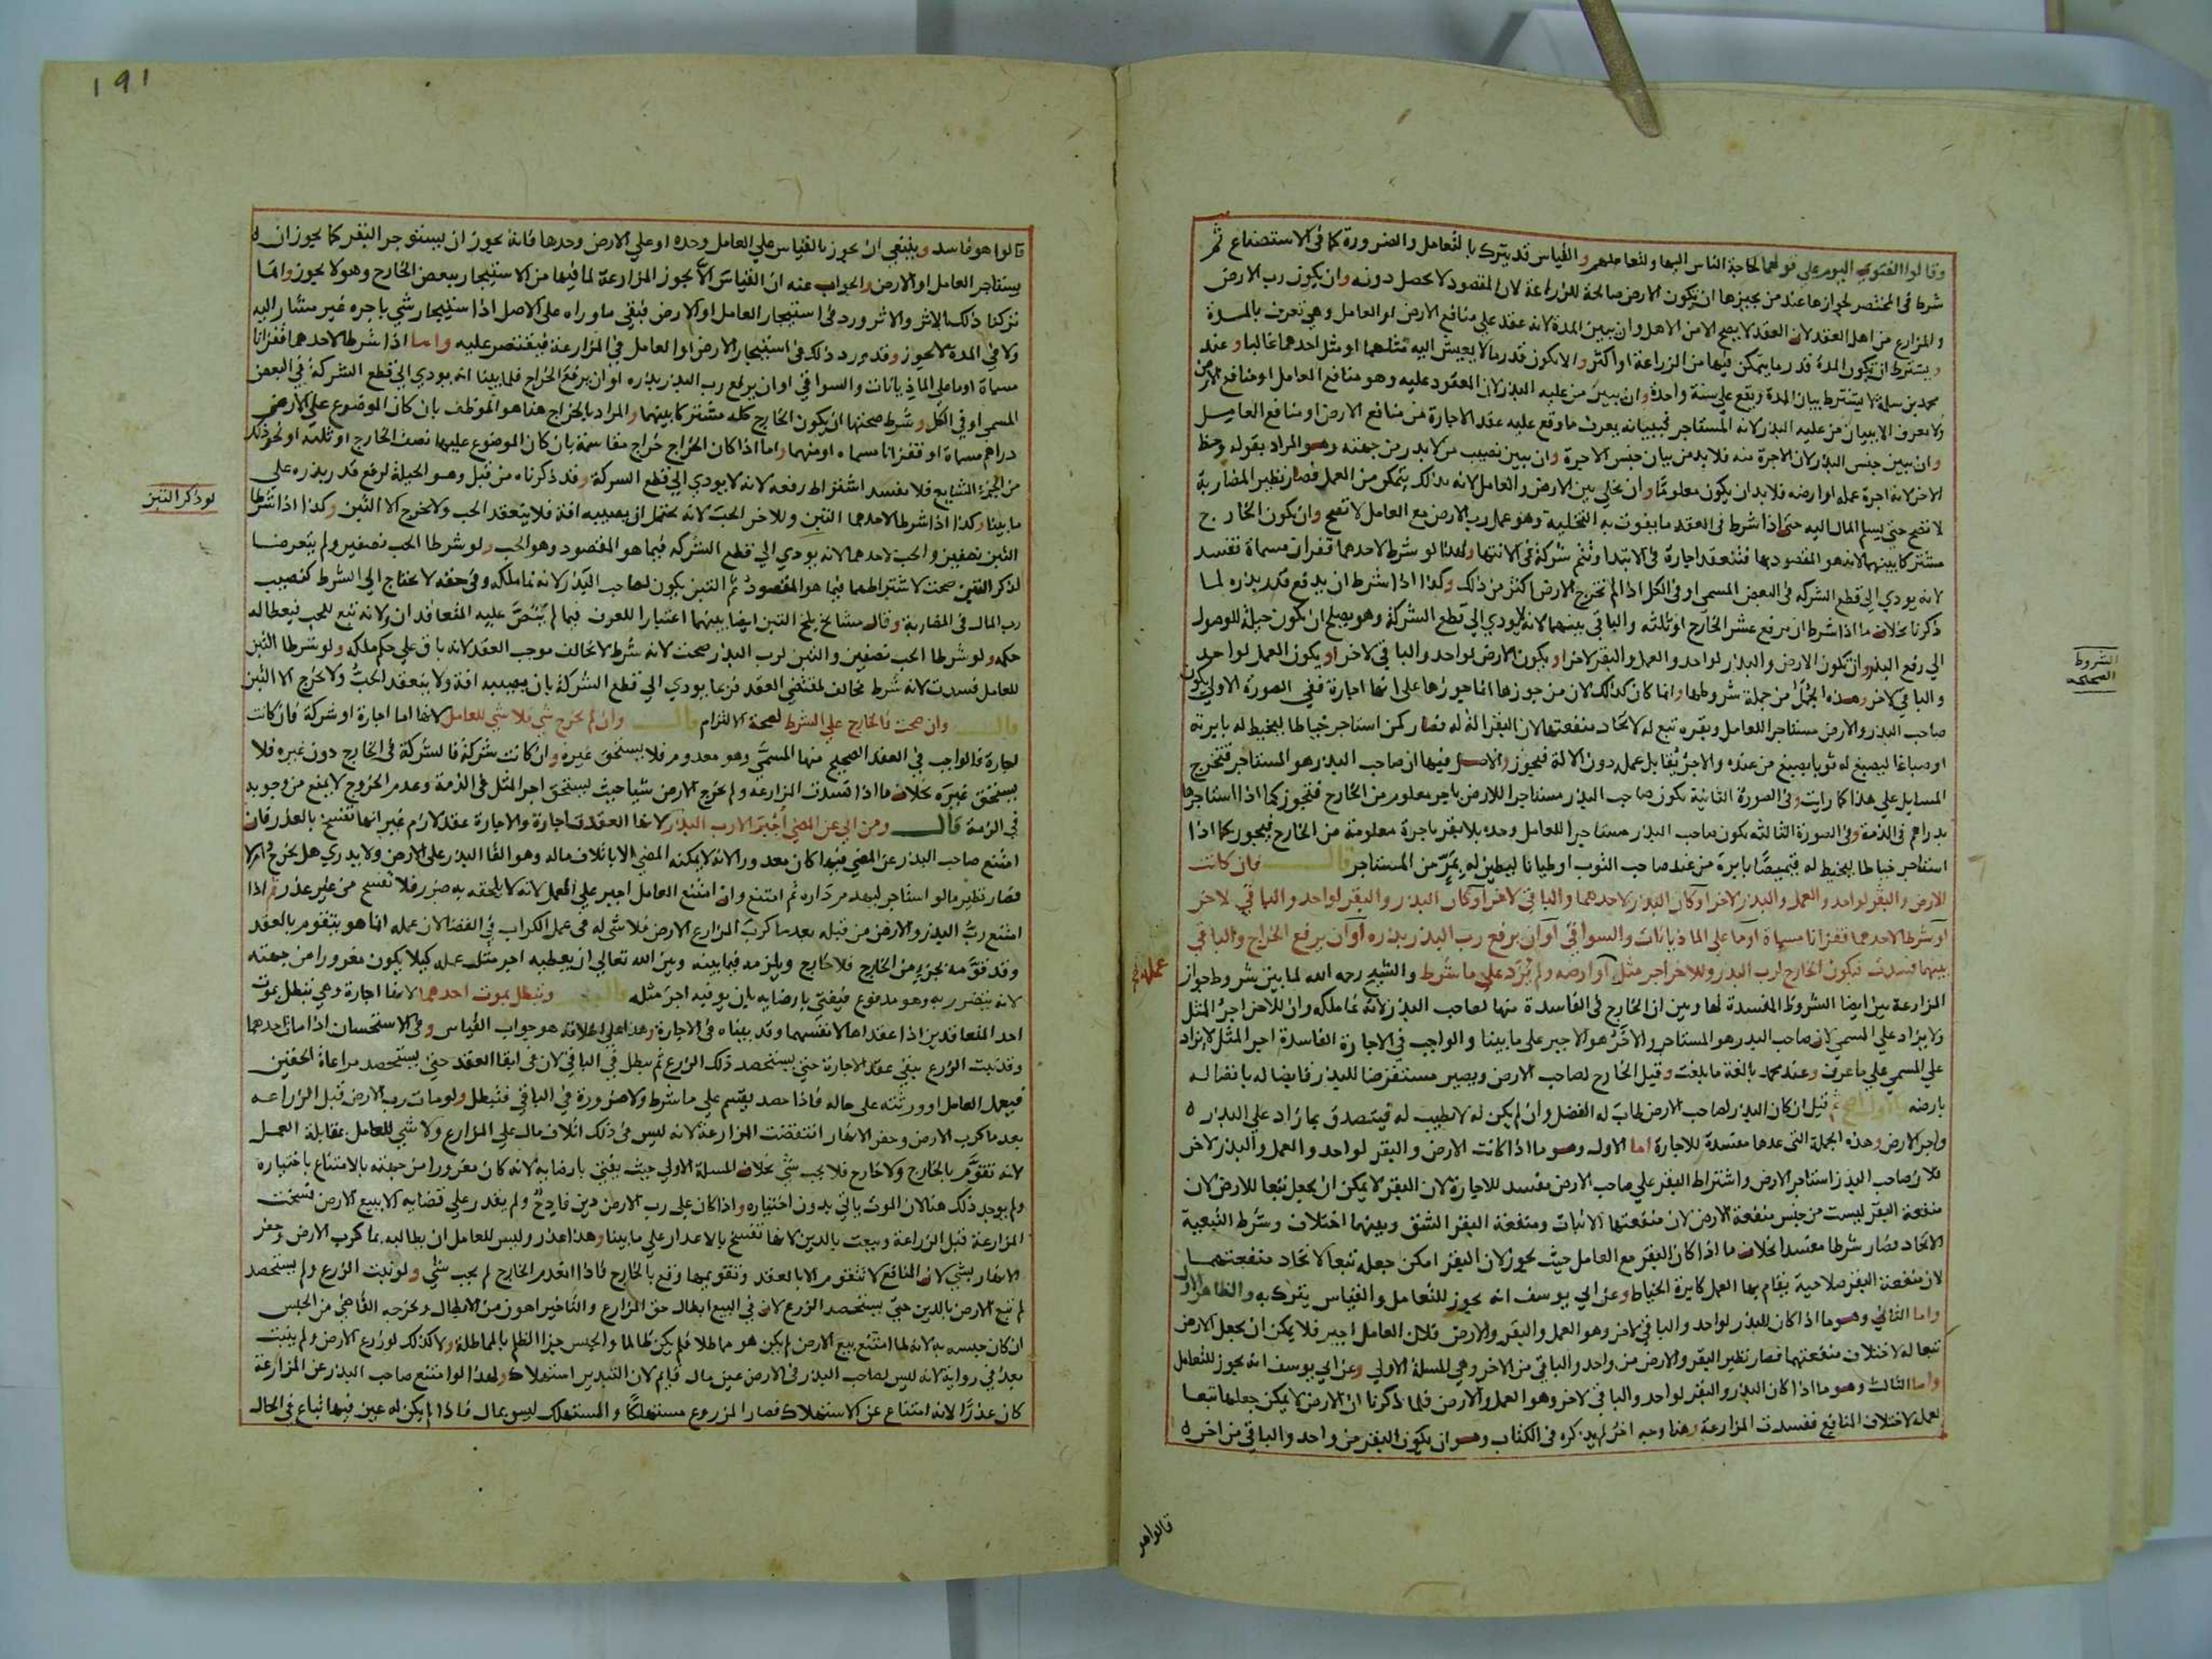 وقالوا الفتوي اليوم علي قولهما لحاجة الناس اليها ولتعاملهم والقياس قد يترك بالتعامل والضرورة كما في الاستصناع ثم
شرط في المختصر لجوازها عند من يجيزها ان تكون الارض صالحة للزراعة لان المقصود لا يحصل دونه وان يكون رب الارض
والمزارع من اهل العقد لان العقد لا يصح الا من الاهل وان يبين المدة لانه عقد علي منافع الارض او العامل وهي تعرف بالمدة
ويشترط ان يكون المدة قدر ما يتمكن فيها من الزراعة او اكثر والا يكون قدر ما لا يعيش اليه مثلهما او مثل احدهما غالبا وعند
محمد بن سلمة لا يشترط بيان المدة ويقع علي سنة واحدة وان يبين من عليه البذر لان المعقود عليه وهو منافع العامل او منافع الارض
لا يعرف الا ببيان من عليه البذر لانه المستاجر فببيانه يعرف ما وقع عليه عقد الاجارة من منافع الارض او منافع العامل
وان يبين جنس البذر لان الاجرة منه فلا بد من بيان جنس الاجرة وان يبين نصيب من لا بذر من جهته وهو المراد بقوله وحظ
الاخر لانه اجرة عمله او ارضه فلا بد ان يكون معلوما وان يخلي بين الارض والعامل لانه بذلك يتمكن من العمل فصار نظير المضاربة
لا تصح حتي يسلم المال اليه حتي اذا شرط في العقد ما يفوت به التخلية وهو عمل رب الارض مع العامل لا تصح وان يكون الخارج
مشتركا بينهما لانه هو المقصود بها فتنعقد اجارة في الابتدا وتتم شركة في الانتها ولهذا لو شرط لاحدهما قفزان مسماة تفسد
لانه يودي الي قطع الشركه في البعض المسمي او في الكل اذا لم تخرج الارض اكثر من ذلك وكذا اذا شرط ان يدفع قدر بذره لما
ذكرنا بخلاف ما اذا شرط ان يرفع عشر الخارج او ثلثه والباقي بينهما لانه لا يودي الي قطع الشركة وهو يصلح ان يكون حيلة للوصول
الي رفع البذر وان تكون الارض والبذر لواحد والعمل والبقر لاخر او يكون الارض لواحد والباقي لاخر او يكون العمل لواحد
والباقي لاخر وهذه الجمل من جملة شروطها وانما كان كذلك لان من جوزها انما جوزها علي انها اجارة ففي الصورة الاولي يكون
صاحب البذر والارض مستاجرا للعامل وبقره تبع له لاتحاد منفعتهما لان البقر الة له فصار كمن استاجر خياطا ليخيط له بابرته
او صباغا ليصبغ له ثوبا بصبغ من عنده والاجر يقابل عمله دون الالة فيجوز والاصل فيها ان صاحب البذر هو المستاجر فتخرج
المسايل علي هذا كما رايت وفي الصورة الثانية يكون صاحب البذر مستاجرا للارض باجر معلوم من الخارج فتجوز كما اذا استاجرها
بدراهم في الذمة وفي الصورة الثالثة يكون صاحب البذر مستاجرا للعامل وحده بلا بقر باجرة معلومة من الخارج فيجوز كما اذا
استاجر خياطا ليخيط له قميصا بابرة من عند صاحب الثوب او طيانا ليطين له بمر من المستاجر قال فان كانت
الارض والبقر لواحد والعمل والبذر لاخر او كان البذر لاحدهما والباقي لاخر او كان البذر والبقر لواحد والباقي لاخر
او شرطا لاحدهما قفزانا مسماة او ما علي الماذيانات والسواقي او ان يرفع رب البذر بذره او ان يرفع الخراج والباقي
بينهما فسدت فيكون الخارج لرب البذر وللاخر اجر مثل او ارضه ولم يزد علي ما شرط والشيخ رحمه الله لما بين شروط جواز
المزارعة بين ايضا الشروط المفسدة لها وبين ان الخارج في الفاسدة منها لصاحب البذر لانه نما ملكه وان للاخر اجر المثل
ولا يزاد علي المسمي لان صاحب البذر هو المستاجر والاخر هو الاجير علي ما بينا والواجب في الاجارة الفاسدة اجر المثل لا يزاد
علي المسمي علي ما عرف وعند محمد بالغة ما بلغت وقيل الخارج لصاحب الارض ويصير مستقرضا للبذر قابضا له باتصاله
بارضه قيل ان كان البذر لصاحب الارض طاب له الفضل وان لم يكن له لا يطيب له فيتصدق بما زاد علي البذر
واجر الارض وهذه الجملة التي عدها مفسدة للاجارة اما الاول وهو ما اذا كانت الارض والبقر لواحد والعمل والبذر لاخر
فلان صاحب البذر استاجر الارض واشتراط البقر علي صاحب الارض مفسد للاجارة لان البقر لا يمكن ان يجعل تبعا للارض لان
منفعة البقر ليست من جنس منفعة الارض لان منفعتها الانبات ومنفعة البقر الشق وبينهما اختلاف وشرط التبعية
الاتحاد فصار شرطا مفسدا بخلاف ما اذا كان البقر مع العامل حيث يجوز لان البقر امكن جعله تبعا لاتحاد منفعتهما
لان منفعة البقر صلاحية يقام بها العمل كابرة الخياط وعن ابي يوسف انه يجوز للتعامل والقياس يترك به والظاهر الاول
واما الثاني وهو ما اذا كان البذر لواحد والباقي لاخر وهو العمل والبقر والارض فلان العامل اجير فلا يمكن ان يجعل الارض
تبعا له لاختلاف منفعتهما فصار نظير البقر والارض من واحد والباقي من الاخر وهي المسلة الاولي وعن ابي يوسف انه يجوز للتعامل
واما الثالث وهو ما اذا كان البذر والبقر لواحد والباقي لاخر وهو العمل والارض فلما ذكرنا ان الارض لا يمكن جعلها تبعا
لعمله لاختلاف المنافع ففسدت المزارعة وهنا وجه اخر لم يذكره في الكتاب وهو ان يكون البقر من واحد والباقي من اخر
الشروط
عمله
قالوا هو
191
قالوا هو فاسد وينبغي ان يجوز بالقياس علي العامل وحده او علي الارض وحدها فانه يجوز ان يستوجر البقر كما يجوز ان
يستاجر العامل او الارض والجواب عنه ان القياس الا يجوز المزارعة لما فيها من الاستيجار ببعض الخارج وهو لا يجوز وانما
تركنا ذلك بالاثر والاثر ورد في استيجار العامل او الارض فبقي ما وراه علي الاصل اذا ستيجار شي باجره غير مشار اليه
ولا في المدة لا يجوز وقد ورد ذلك في استيجار الارض او العامل في المزارعة فيقتصر عليه واما اذا شرطا لاحدهما قفزانا
مسماة او ما علي الماذيانات والسواقي او ان يرفع رب البذر بذره او ان يرفع الخراج فلما بينا انه يودي الي قطع الشركة في البعض
المسمي او في الكل وشرط صحتها ان يكون الخارج كله مشتركا بينهما والمراد بالخراج هنا هو الموظف بان كان الموضوع علي الارض
دراهم مسماة او قفزانا مسماه او منهما واما اذا كان الخراج خراج مقاسمة بان كان الموضوع عليهما نصف الخارج او ثلثه او نحو ذلك
من الجزء الشايع فلا يفسد اشتراط رفعه لانه لا يودي الي قطع الشركة وقد ذكرناه من قبل وهو الحيلة لرفع قدر بذره علي
ما بينا وكذا اذا شرطا لاحدهما التبن وللاخر الحب لانه يحتمل ان يصيبه افة فلا ينعقد الحب ولا يخرج الا التبن وكذا اذا شرطا
التبن نصفين والحب لاحدهما لانه يودي الي قطع الشركه فيما هو المقصود وهو الحب ولو شرطا الحب نصفين ولم يتعرضا
لذكر التبن صحت لاشتراطهما فيما هو المقصود ثم التبن يكون لصاحب البذر لانه نما ملكه وفي حقه لا يحتاج الي الشرط كنصيب
رب المال في المضاربة وقال مشايخ بلخ التبن ايضا بينهما اعتبارا للعرف فيما لم ينص عليه المتعاقدان ولانه تبع للحب فيعطا له
حكمه ولو شرطا الحب نصفين والتبن لرب البذر صحت لانه شرط لا يخالف موجب العقد لانه باق علي حكم ملكه ولو شرطا التبن
للعامل فسدت لانه شرط مخالف لمقتضي العقد فربما يودي الي قطع الشركة بان يصيبه افة ولا ينعقد الحب ولا يخرج الا التبن
قال وان صحت فالخارج علي الشرط لصحة الالتزام قال وان لم يخرج شي فلا شي للعامل لانها اما اجارة او شركة فان كانت
اجارة فالواجب في العقد الصحيح منها المسمي وهو معدوم فلا يستحق غيره وان كانت شركة فالشركة في الخارج دون غيره فلا
يستحق غيره بخلاف ما اذا فسدت المزارعه ولم تخرج الارض شيا حيث يستحق اجر المثل في الذمة وعدم الخروج لا يمنع من وجوبه
في الذمة قال ومن ابي عن المضي اجبر الا رب البذر لانها انعقدت اجارة والاجارة عقد لازم غير انها تفسخ بالعذر فان
امتنع صاحب البذر عن المضي فيها كان معذورا لانه لا يمكنه المضي الا باتلاف ماله وهو القا البذر علي الارض ولا يدري هل يخرج ام لا
فصار نظير ما لو استاجر ليهدم داره ثم امتنع وان امتنع العامل اجبر علي العمل لانه لا يلحقه به ضرر فلا تفسخ من غير عذر ثم اذا
امتنع رب البذر والارض من قبله بعدما كرب المزارع الارض فلا شي له في عمل الكراب في القضا لان عمله انما هو يتقوم بالعقد
وقد قومه بجزء من الخارج فلا خارج ويلزمه فيما بينه وبين الله تعالي ان يعطيه اجر مثل عمله كيلا يكون مغرورا من جهته
لانه يتضرر به وهو مدفوع فيفتي بارضايه بان يوفيه اجر مثله قال وتبطل بموت احدهما لانها اجارة وهي تبطل بموت
احد المتعاقدين اذا عقداها لانفسهما وقد بيناه في الاجارة وهذا علي اطلاقه هو جواب القياس وفي الاستحسان اذا مات احدهما
وقد نبت الزرع يبقي عقد الاجارة حتي يستحصد ذلك الزرع ثم يبطل في الباقي لان في ابقا العقد حتي يستحصد مراعاة الحقين
فيعمل العامل او ورثته علي حاله فاذا حصد يقسم علي ما شرط ولا ضرورة في الباقي فتبطل ولو مات رب الارض قبل الزراعه
بعد ما كرب الارض وحفر الانهار انتقضت المزارعة لانه ليس في ذلك اتلاف مال علي المزارع ولا شي للعامل بمقابلة العمل
لانه تقوم بالخارج ولا خارج فلا يجب شي بخلاف المسلة الاولي حيث يفتي بارضايه لانه كان مغرورا من جهته بالامتناع باختياره
ولم يوجد ذلك هنا لان الموت ياتي بدون اختياره واذا كان علي رب الارض دين فادح ولم يقدر علي قضايه الا ببيع الارض فسخت
المزارعة قبل الزراعة وبيعت بالدين لانها تفسخ بالاعذار علي ما بينا وهذا عذر وليس للعامل ان يطالبه بما كرب الارض وحفر
الانهار بشي لان المنافع لا تتقوم الا بالعقد وتقويمها وقع بالخارج فاذا انعدم الخارج لم يجب شي ولو نبت الزرع ولم يستحصد
لم تبع الارض بالدين حتي يستحصد الزرع لان في البيع ابطال حق المزارع والتاخير اهون من الابطال ويخرجه القاضي من الحبس
ان كان حبسه به لانه لما امتنع بيع الارض لم يكن هو مماطلا فلم يكن ظالما والحبس جزا الظلم بالمماطلة ولا كذلك لو زرع الارض ولم ينبت
بعد في رواية لانه ليس لصاحب البذر في الارض عين مال قايم لان التبذير استهلاك ولهذا لو امتنع صاحب البذر عن المزارعة
كان عذرا لانه امتناع عن الاستهلاك فصار المزروع مستهلكا والمستهلك ليس بمال فاذا لم يكن له عين فيها تباع في الحال
لو ذكر التبن